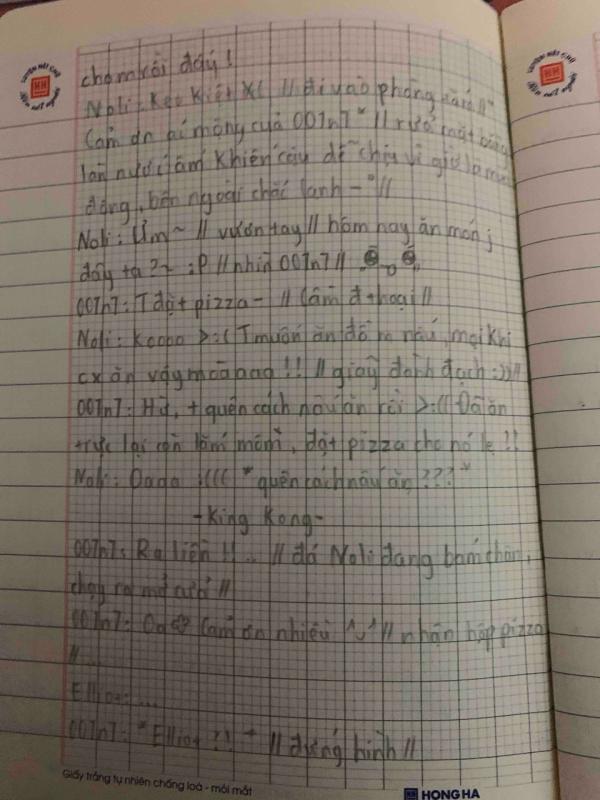 chạm rồi đấy!
Noli: Kéo Kiệt X( //đi vào phòng
Cảm ơn ái mộng của 007n7 " // rửa mặt bằng
làn nước ấm khiến cậu dễ chịu vì giờ là mùa
đông, bên ngoài chắc lạnh -" //
Noli: Ưm~ // vươn tay // hôm nay ăn món j
đấy ta?~ :P // nhìn 007n7 //
007n7: T đặt pizza- // cầm đ+hoại //
Noli: Koooo >:( T muốn ăn đồ m nấu, mọi khi
cx ăn vậy mà !! // giãy đành đạch :)) //
007n7: Hừ, + quên cách nấu ăn rồi >:(( Đã ăn
+rực lại còn lắm mồm, đặt pizza cho nó lẹ ?!
Noli: Oaoa :(((( " quên cách nấu ăn ??? "
-King Kong-
007n7: Ra liền !! .. // đá Noli đang bám chân,
chạy ra mở cửa //
007n7: Oa Cảm ơn nhiều ^u^ // nhận hộp pizza
// ...
Elliot: ...
007n7: "Elliot ?! " // đứng hình //
Giấy trắng tự nhiên chống loá - mỏi mắt
HONG HA